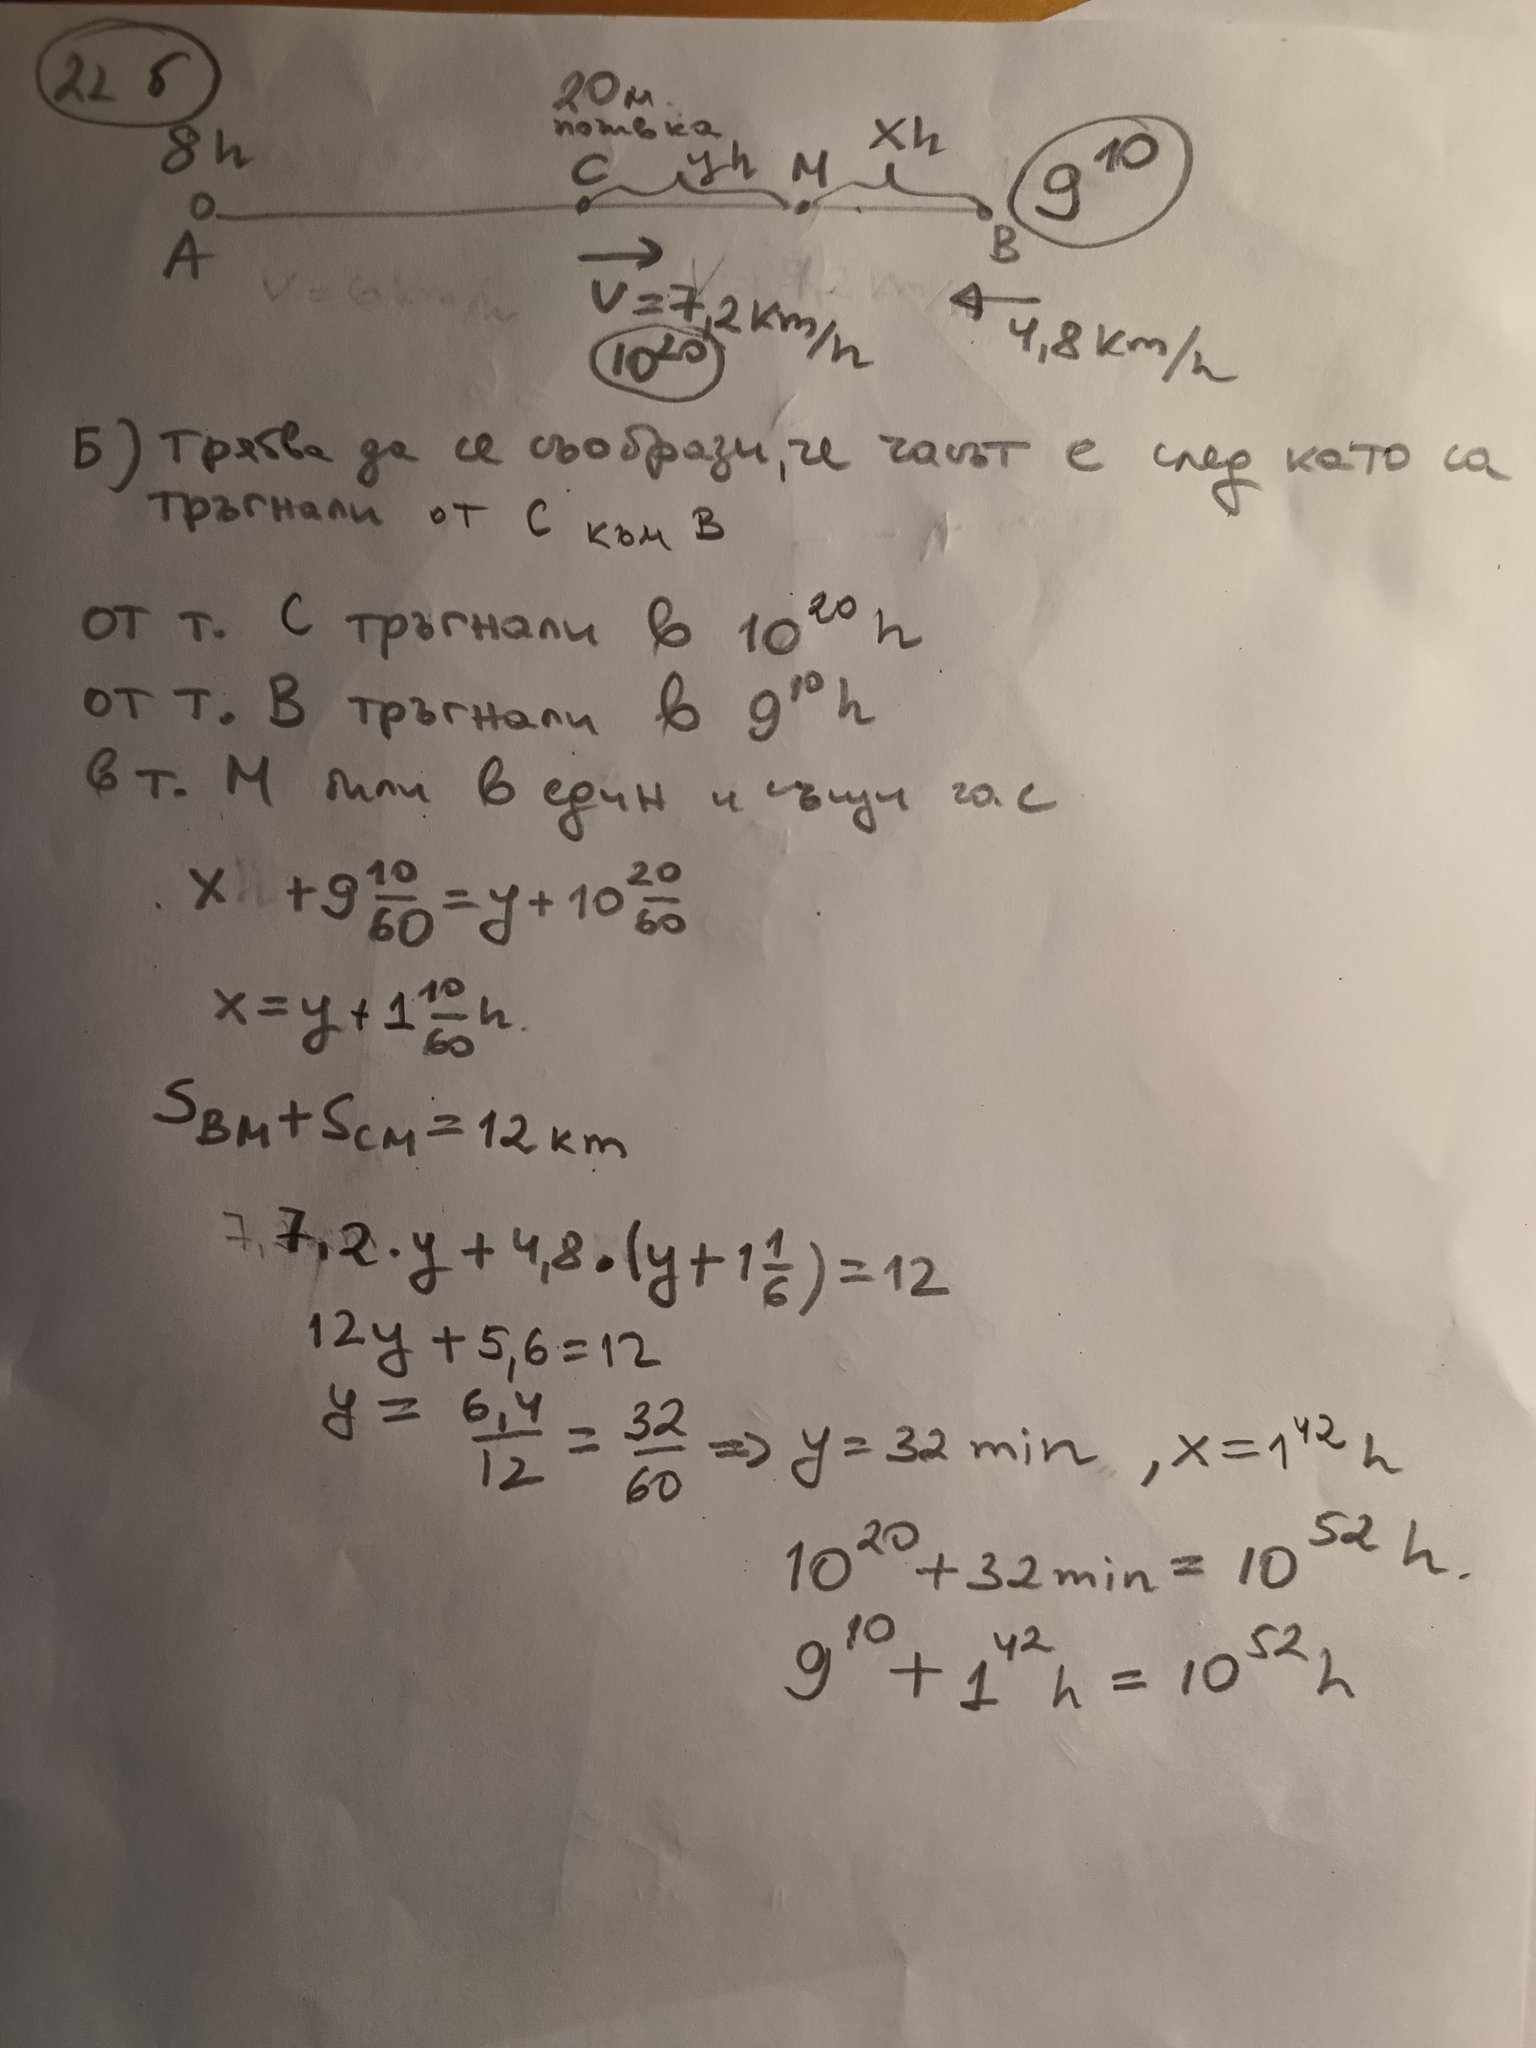 22 б
20м.
почивка
8h
C
yh
M
xh
9¹⁰
A
B
V=6km/h
V=7,2km/h
4,8km/h
10²⁰
Б) трябва да се съобрази, че часът е след като са
тръгнали от C към B
от т. C тръгнали в 10²⁰h
от т. B тръгнали в 9¹⁰h
в т. M били в един и същи час
x + 9 10/60 = y + 10 20/60
x = y + 1 10/60 h.
S_BM + S_CM = 12 km
7,2·y + 4,8·(y + 1 1/6) = 12
12y + 5,6 = 12
y = 6,4/12 = 32/60 => y = 32 min, x = 1⁴²h
10²⁰ + 32min = 10⁵² h.
9¹⁰ + 1⁴²h = 10⁵²h